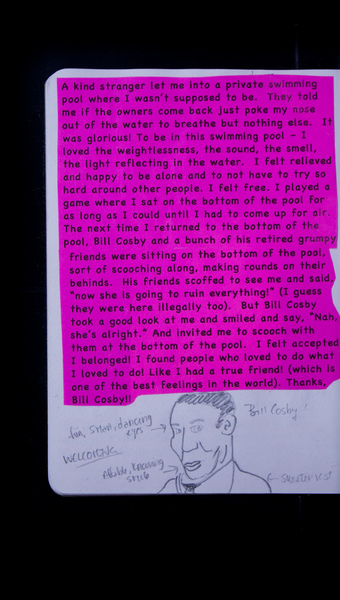 A kind stranger let me into a private swimming
pool where I wasn't supposed to be. They told
me if the owners come back just poke my nose
out of the water to breathe but nothing else. It
was glorious! To be in this swimming pool – I
loved the weightlessness, the sound, the smell,
the light reflecting in the water. I felt relieved
and happy to be alone and to not have to try so
hard around other people. I felt free. I played a
game where I sat on the bottom of the pool for
as long as I could until I had to come up for air.
The next time I returned to the bottom of the
pool, Bill Cosby and a bunch of his retired grumpy
friends were sitting on the bottom of the pool,
sort of scooching along, making rounds on their
behinds. His friends scoffed to see me and said,
"now she is going to ruin everything!" (I guess
they were here illegally too). But Bill Cosby
took a good look at me and smiled and say, "Nah,
she's alright." And invited me to scooch with
them at the bottom of the pool. I felt accepted
I belonged! I found people who loved to do what
I loved to do! Like I had a true friend! (which is
one of the best feelings in the world). Thanks,
Bill Cosby!!
Bill Cosby
fun, smart, dancing
eyes
WELCOMING
Affable, knowing
smile